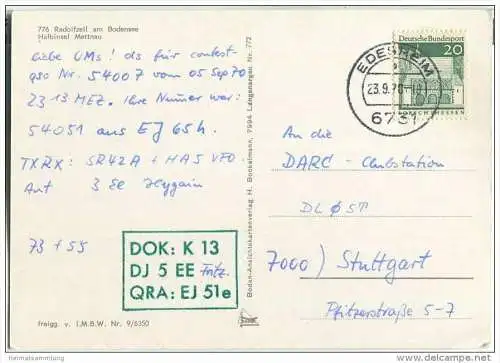 776 Radolfzell am Bodensee
Halbinsel Mettnau
liebe UMs! ds für contest-
qso Nr. 54007 vom 05 Sep 70
2313 MEZ. Ihre Numer war:
54051 aus EJ 65h.
TXRX: SR42A + HA5 VFO
Ant 3 Ee Hygain
73 + 55
DOK: K 13
DJ 5 EE Fritz
QRA: EJ 51e
freigg. v. I.M.B.W. Nr. 9/6350
Bodan-Ansichtskartenverlag H. Bockelmann, 7994 Langenargen Nr. 772
EDESHEIM
23.9.70
6731
Deutsche Bundespost
20
LORSCH/HESSEN
An die
DARC - Clubstation
DLØST
7000) Stuttgart
Pfitzerstraße 5-7
heimatsammlung